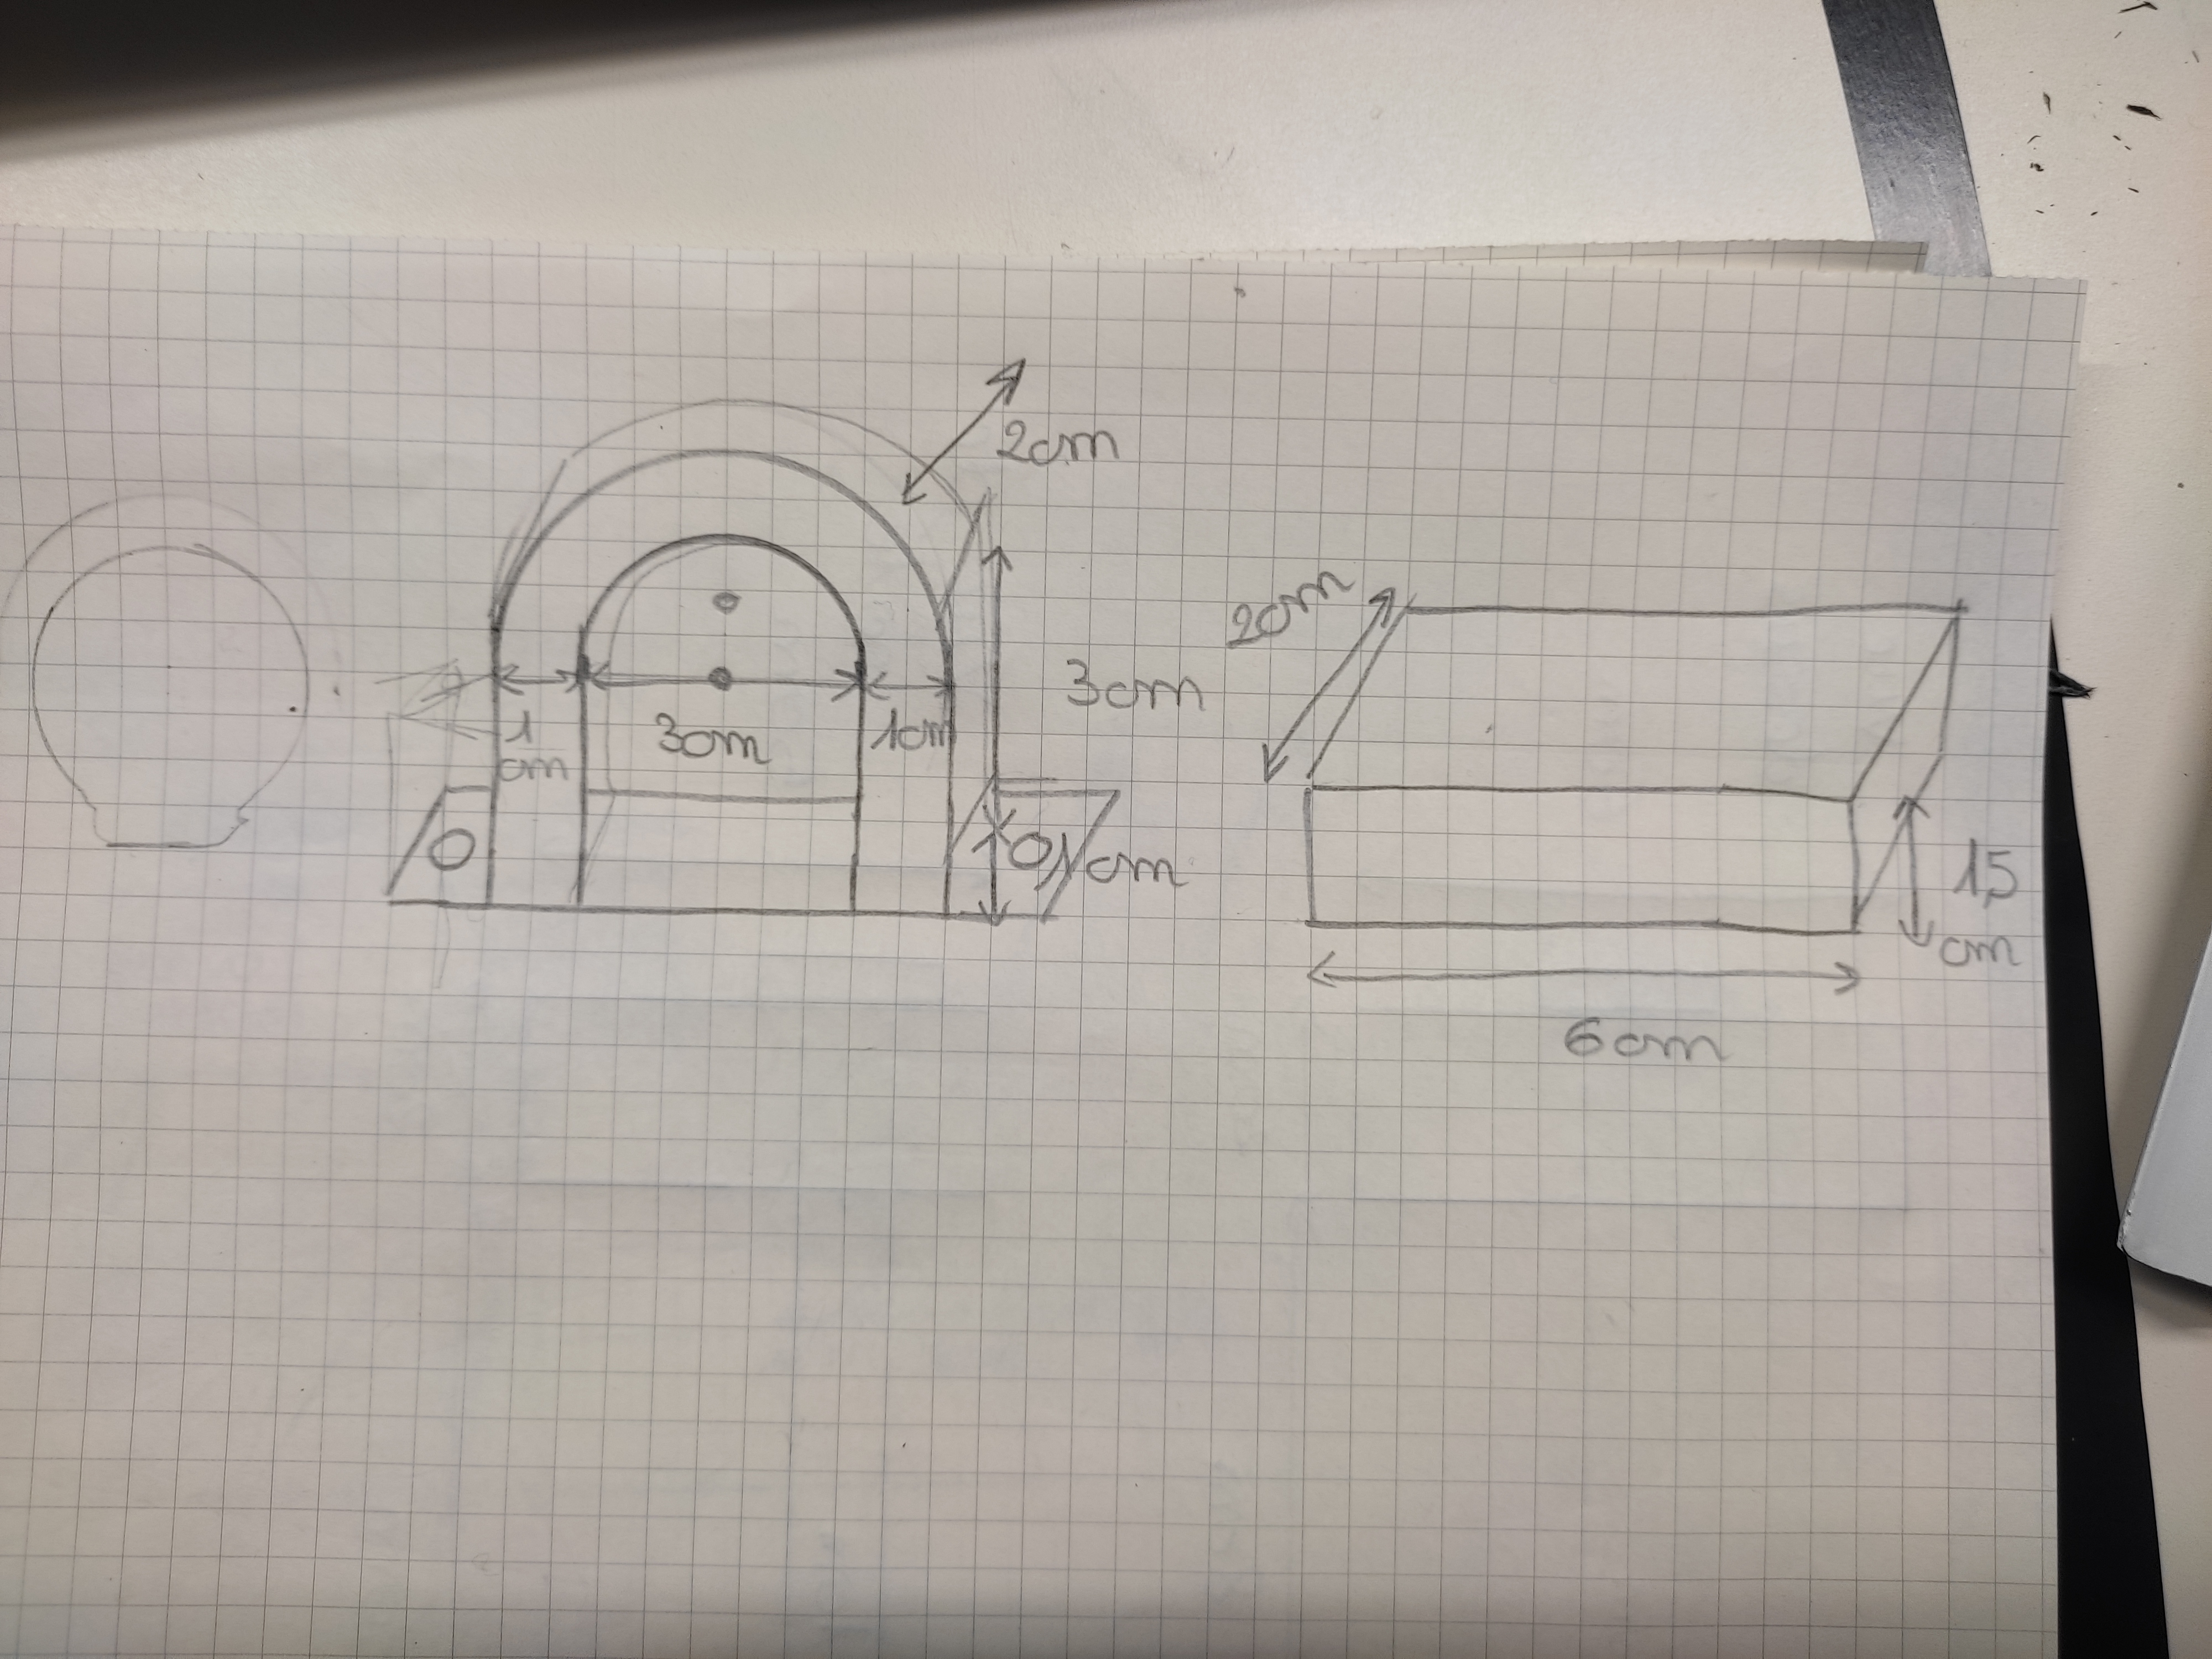 2cm
3cm
1
cm
3cm
1cm
1cm
2cm
1,5
cm
6cm